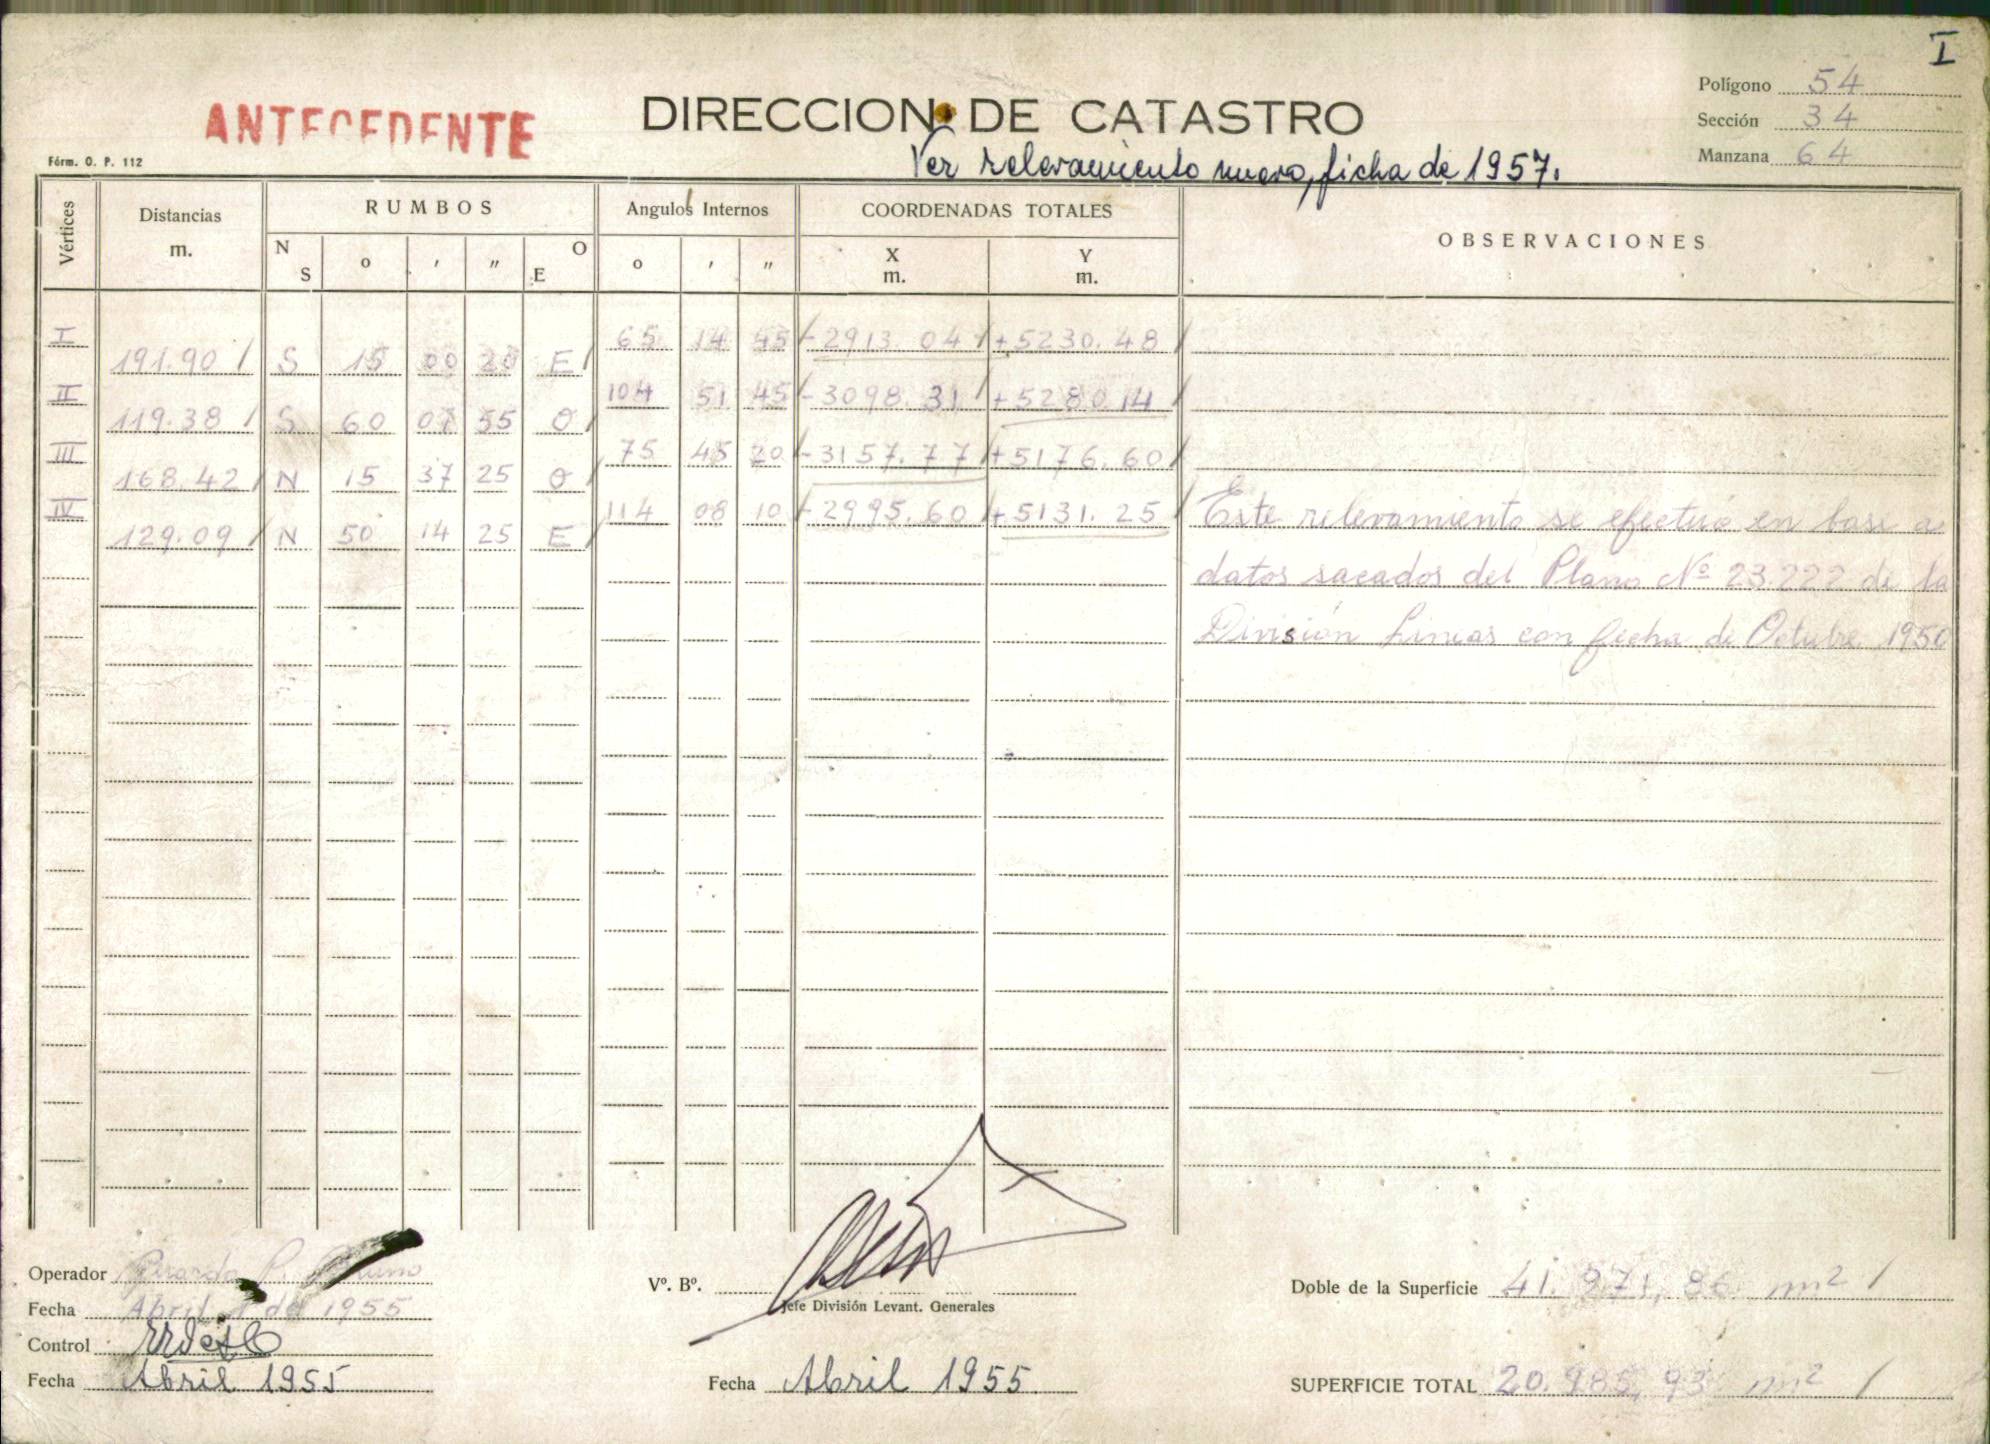 I
Polígono 54
ANTECEDENTE
DIRECCION DE CATASTRO
Sección 34
Fórm. O. P. 112
Ver relevamiento nuevo, ficha de 1957.
Manzana 64
Vértices Distancias m. RUMBOS Angulos Internos COORDENADAS TOTALES OBSERVACIONES
N S o ' " O E o ' " X m. Y m.
I 65 14 45 -2913.04 +5230.48
191.90 S 15 00 20 E
II 104 51 45 -3098.31 +5280.14
119.38 S 60 07 55 O
III 75 45 20 -3157.77 +5176.60
168.42 N 15 37 25 O
IV 114 08 10 -2995.60 +5131.25 Este relevamiento se efectuó en base a
129.09 N 50 14 25 E
datos sacados del Plano Nº 23.222 de la
División Lineas con fecha de Octubre 1950
Operador
Vº. Bº.
Doble de la Superficie 41.971,86 m2
Fecha Abril 1 de 1955
Jefe División Levant. Generales
Control
Fecha Abril 1955
Fecha Abril 1955.
SUPERFICIE TOTAL 20.985,93 m2